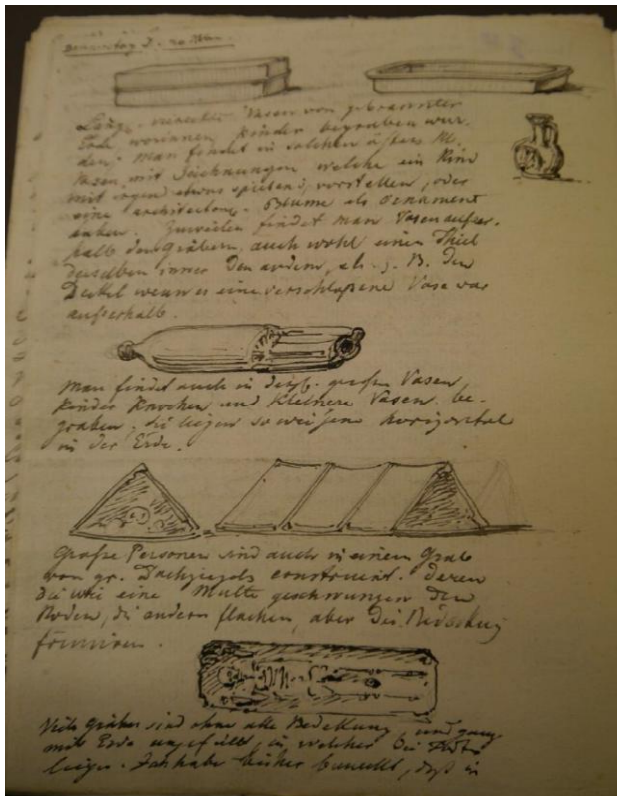 Längl. viereckte Vasen von gebrannter
Erde worinnen Kinder begraben wur-
den. Man findet in solchen öfters kl.
Vasen mit Zeichnungen welche ein Kind
mit irgen etwas spielend, vorstellen, oder
eine architecton. Blume als Ornament
haben. Zuweilen findet man Vasen ausser-
halb den Gräbern, auch wohl einen Theil
derselben inner den andern, als z. B. den
Deckel wenn es eine verschloßene Vase war
ausserhalb.
Man findet auch in großen Vasen
Kinder Knochen und kleinere Vasen be-
graben, die liegen so weise horizontal
in der Erde.
Große Personen sind auch in einem Grab
von gr. Dachziegeln construirt. deren
die wie eine Multe geschwungen den
Boden, die andern flachen, aber die Bedeckung
formiren.
Viele Gräber sind ohne alle Bedekung, und ganz
mit Erde angefüllt, in welcher die
liegen. Ich habe bisher bemerkt, daß in